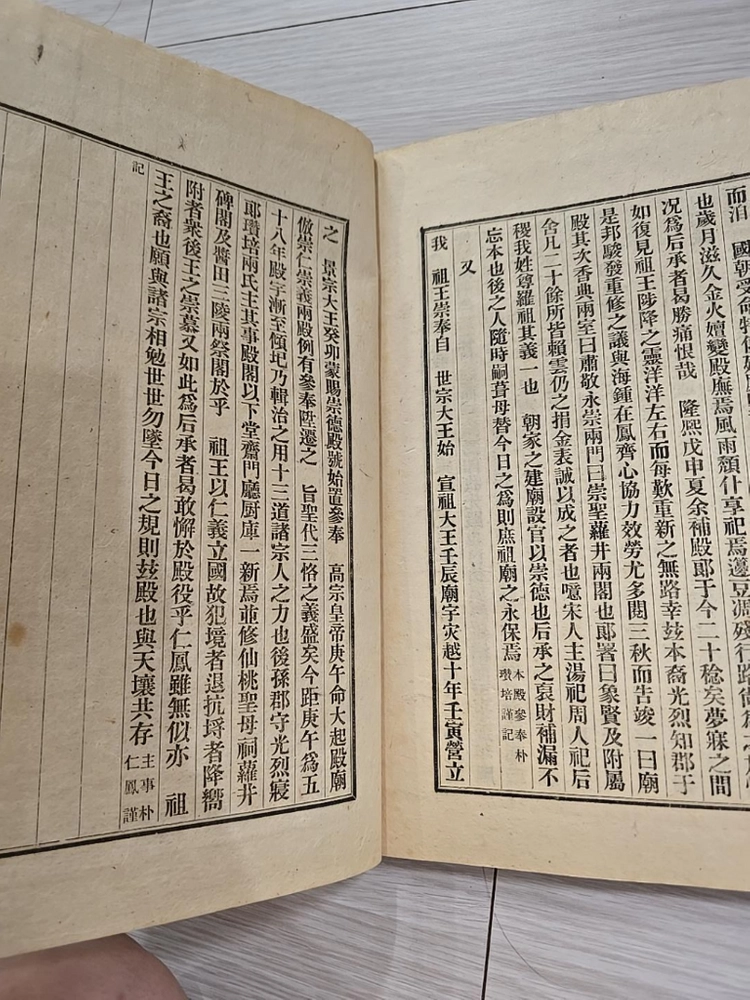 而洎 國朝受命
也歲月滋久金火嬗變殿廡焉風雨頹什享祀焉籩豆凋殘行路
况爲后承者曷勝痛恨哉 隆熙戊申夏余補殿郞于今二十稔矣夢寐之間
如復見祖王陟降之靈洋洋左右而每歎重新之無路幸玆本裔光烈知郡于
是邦駿發重修之議與海鍾在鳳齊心協力效勞尤多閱三秋而告竣一曰廟
殿其次香典兩室曰肅敬永崇兩門曰崇聖蘿井兩閣也郞署曰象賢及附屬
舍凡二十餘所皆賴雲仍之捐金表誠以成之者也噫宋人主湯祀周人祀后
稷我姓尊羅祖其義一也 朝家之建廟設官以崇德也后承之裒財補漏不
忘本也後之人隨時嗣葺毋替今日之爲則庶祖廟之永保焉 本殿參奉朴
瓚培謹記
又
我 祖王崇奉自 世宗大王始 宣祖大王壬辰廟宇灾越十年壬寅營立
之 景宗大王癸卯蒙賜崇德殿號始置參奉 高宗皇帝庚午命大起殿廟
倣崇仁崇義兩殿例有參奉陞遷之 旨聖代三恪之義盛矣今距庚午爲五
十八年殿宇漸至傾圮乃輯治之用十三道諸宗人之力也後孫郡守光烈寢
郞瓚培兩氏主其事殿閣以下堂齋門廳厨庫一新焉並修仙桃聖母祠蘿井
碑閣及醬田三陵兩祭閣於乎 祖王以仁義立國故犯境者退抗將者降嚮
附者衆後王之崇慕又如此爲后承者曷敢懈於殿役乎仁鳳雖無似亦 祖
王之裔也願與諸宗相勉世世勿墜今日之規則玆殿也與天壤共存 主事朴
仁鳳謹
記